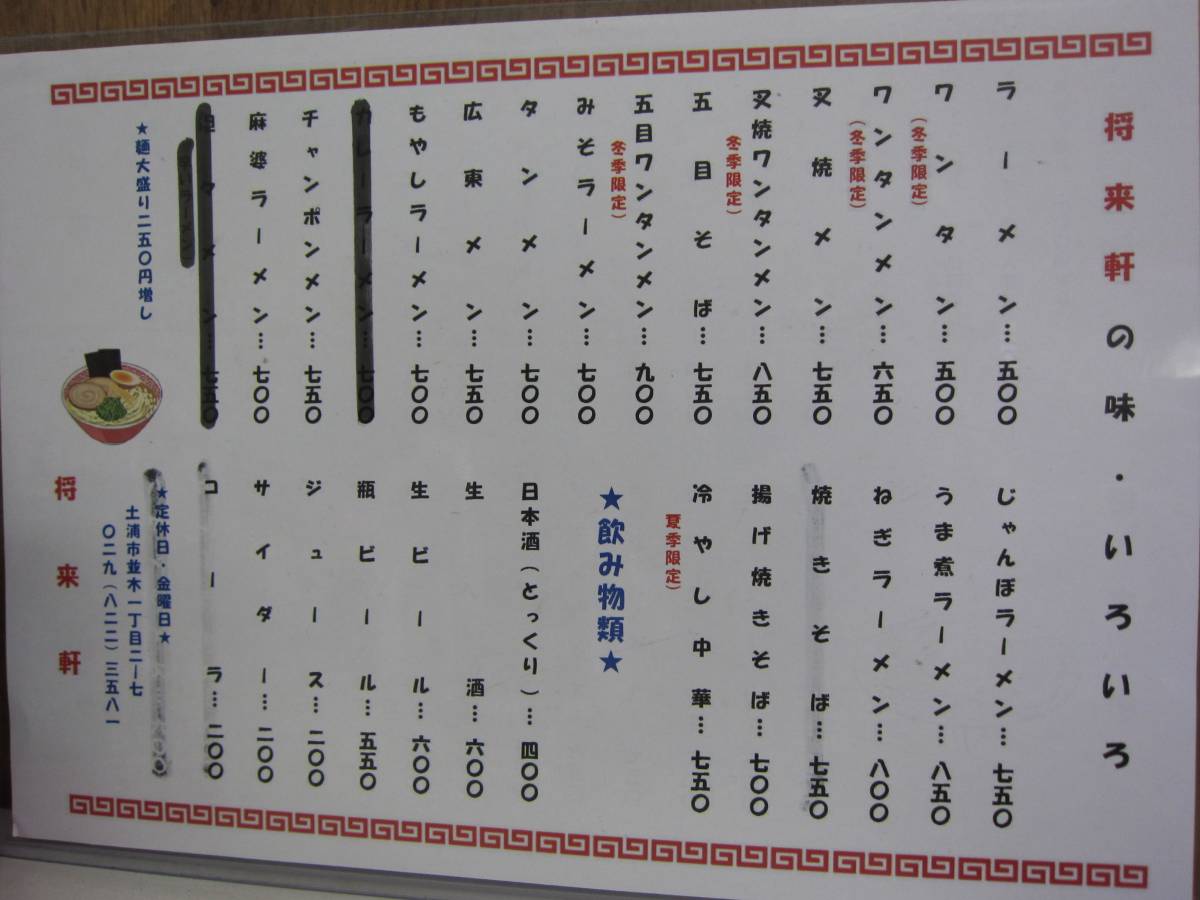 将来軒の味・いろいろ
ラーメン…五〇〇
ワンタン…五〇〇
(冬季限定)
ワンタンメン…六五〇
(冬季限定)
叉焼メン…七五〇
叉焼ワンタンメン…八五〇
(冬季限定)
五目そば…七五〇
五目ワンタンメン…九〇〇
(冬季限定)
みそラーメン…七〇〇
タンメン…七〇〇
広東メン…七五〇
もやしラーメン…七〇〇
カレーラーメン…七〇〇
チャンポンメン…七五〇
麻婆ラーメン…七〇〇
担タメン…七五〇
辛いラーメン
★麺大盛り二五〇円増し
じゃんぼラーメン…七五〇
うま煮ラーメン…八五〇
ねぎラーメン…八〇〇
焼きそば…七五〇
揚げ焼きそば…七〇〇
冷やし中華…七五〇
夏季限定)
★飲み物類★
日本酒(とっくり)…四〇〇
生酒…六〇〇
生ビール…六〇〇
瓶ビール…五五〇
ジュース…二〇〇
サイダー…二〇〇
コーラ…二〇〇
★定休日・金曜日★
土浦市並木一丁目二ー七
〇二九(八二二)三五八一
将来軒